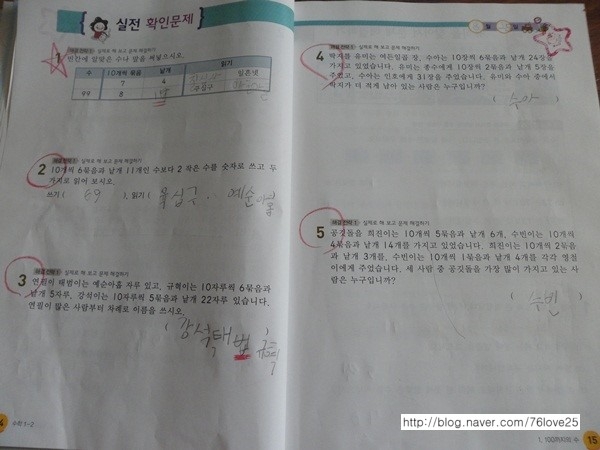 실전 확인문제
해결 전략 1 실제로 해 보고 문제 해결하기
1 빈칸에 알맞은 수나 말을 써넣으시오.
수 10개씩 묶음 낱개 읽기
7 4 일흔넷
8
2 10개씩 6묶음과 낱개 11개인 수보다 2 작은 수를 숫자로 쓰고 두
가지로 읽어 보시오.
쓰기 ( 69 ), 읽기 ( 육십구
3 연필이 태범이는 예순아홉 자루 있고, 규혁이는 10자루씩 6묶음과
낱개 5자루, 강석이는 10자루씩 5묶음과 낱개 22자루 있습니다.
연필이 많은 사람부터 차례로 이름을 쓰시오.
( 강석 태범 규혁 )
수학 1-2
4 딱지를 유미는 여든일곱 장, 수아는 10장씩 6묶음과 낱개 24장을
가지고 있었습니다. 유미는 종수에게 10장씩 2묶음과 낱개 5장을
주었고, 수아는 민호에게 31장을 주었습니다. 유미와 수아 중에서
딱지가 더 적게 남아 있는 사람은 누구입니까?
( 수아 )
해결 전략 1 실제로 해 보고 문제 해결하기
5 공깃돌을 희진이는 10개씩 5묶음과 낱개 6개, 수민이는 10개씩
4묶음과 낱개 14개를 가지고 있었습니다. 희진이는 10개씩 2묶음
과 낱개 3개를, 수민이는 10개씩 1묶음과 낱개 4개를 각각 영철
이에게 주었습니다. 세 사람 중 공깃돌을 가장 많이 가지고 있는 사
람은 누구입니까?
( 수빈 )
http://blog.naver.com/76love25
1. 100까지의 수 15